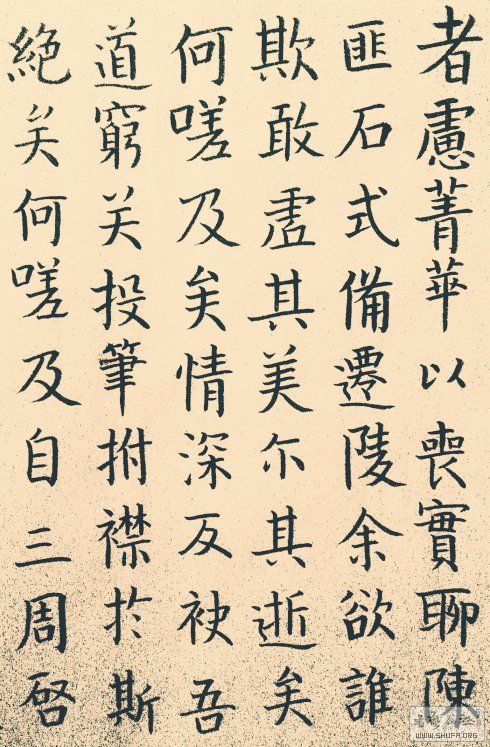 者慮菁華以喪實聊陳
匪石式備遷陵余欲誰
欺敢虛其美尒其逝矣
何嗟及矣情深反袂吾
道窮矣投筆拊襟於斯
絕矣何嗟及自三周啓
WWW.SHUFA.ORG